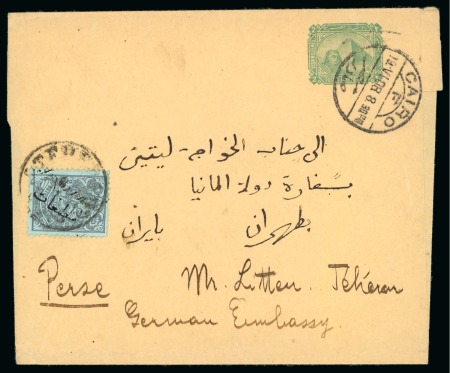 CAIRO
الى جناب الخواجه ليتين
بسفارة دولة المانيا
بطهران بايران
Perse Mr. Litten. Téhéran
German Embassy.